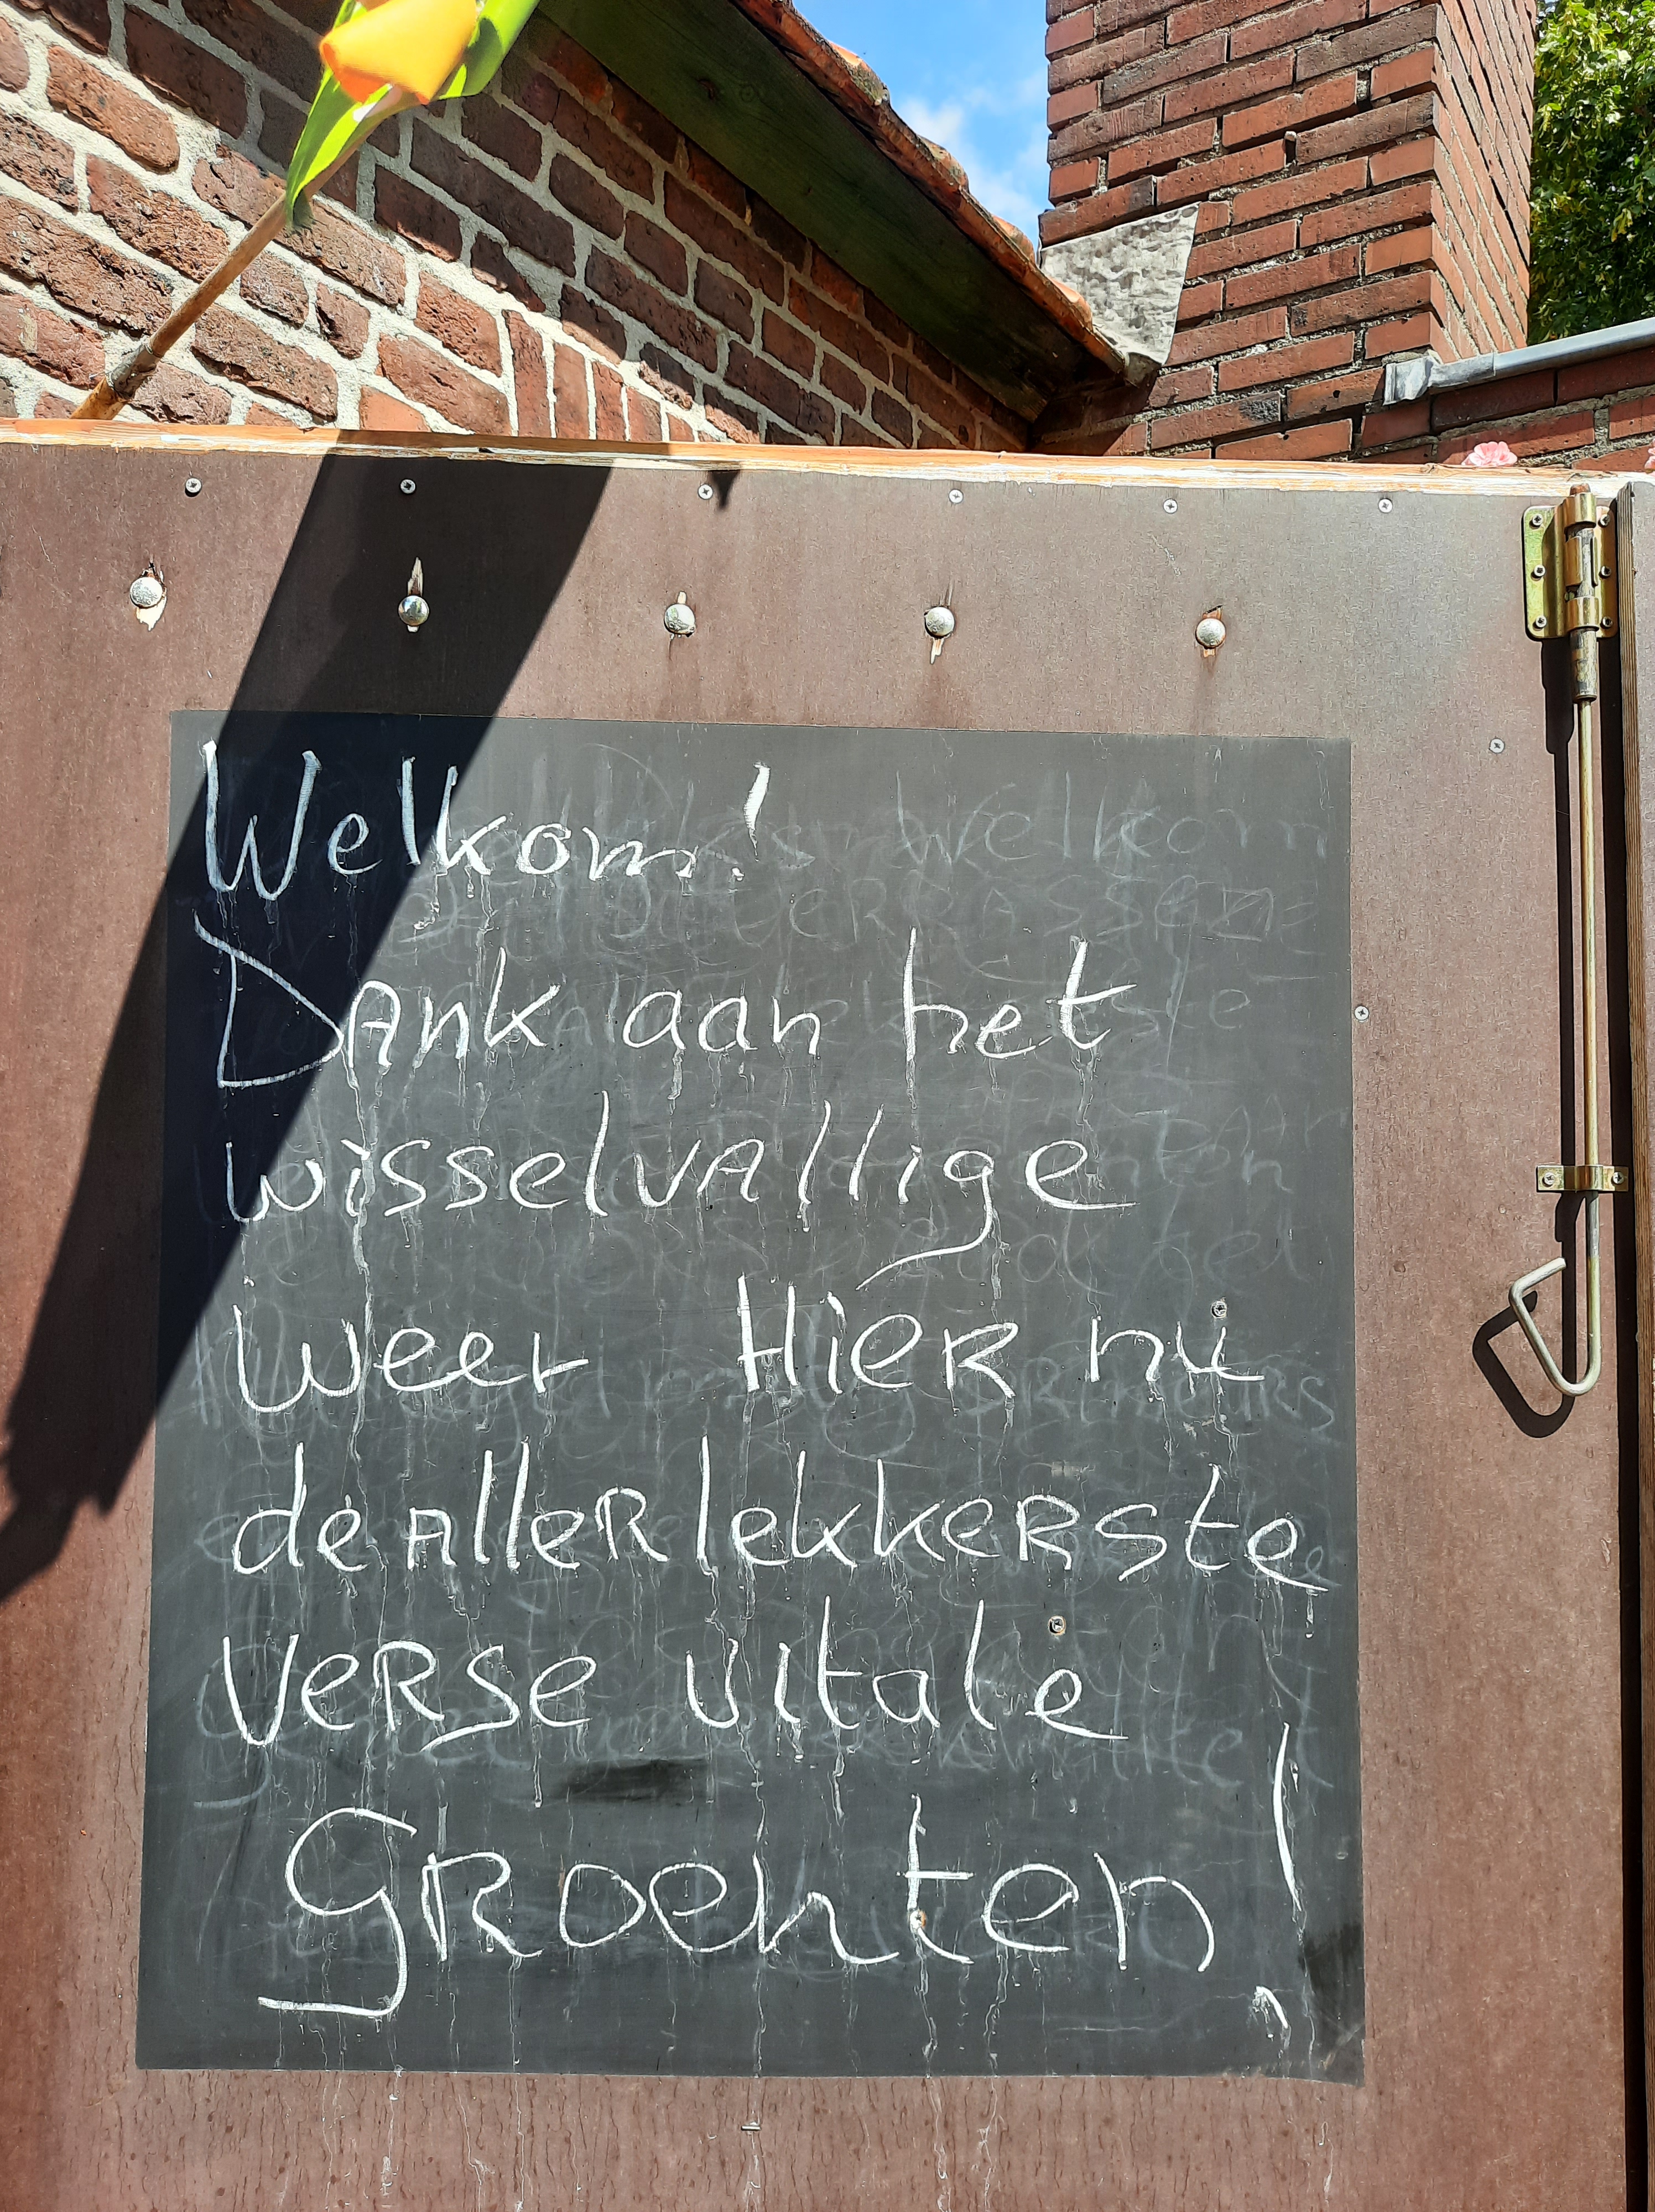 Welkom!
Dank aan het
wisselvallige
weer Hier nu
de allerlekkerste
verse vitale
Groenten!